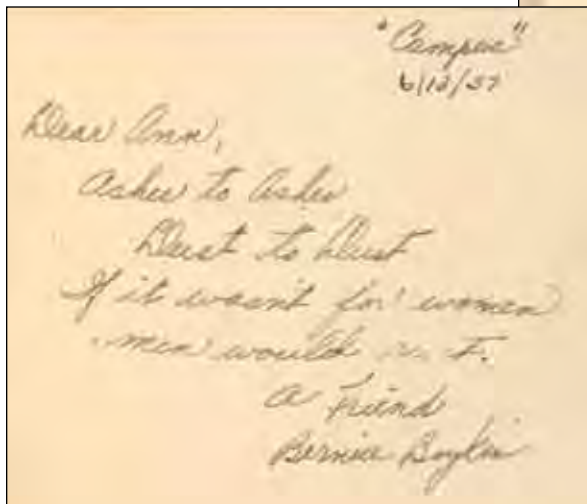 "Campus"
6/12/37
Dear Ann,
Ashes to Ashes
Dust to Dust
If it wasn't for women
men would rust.
A Friend
Bernice Boykin